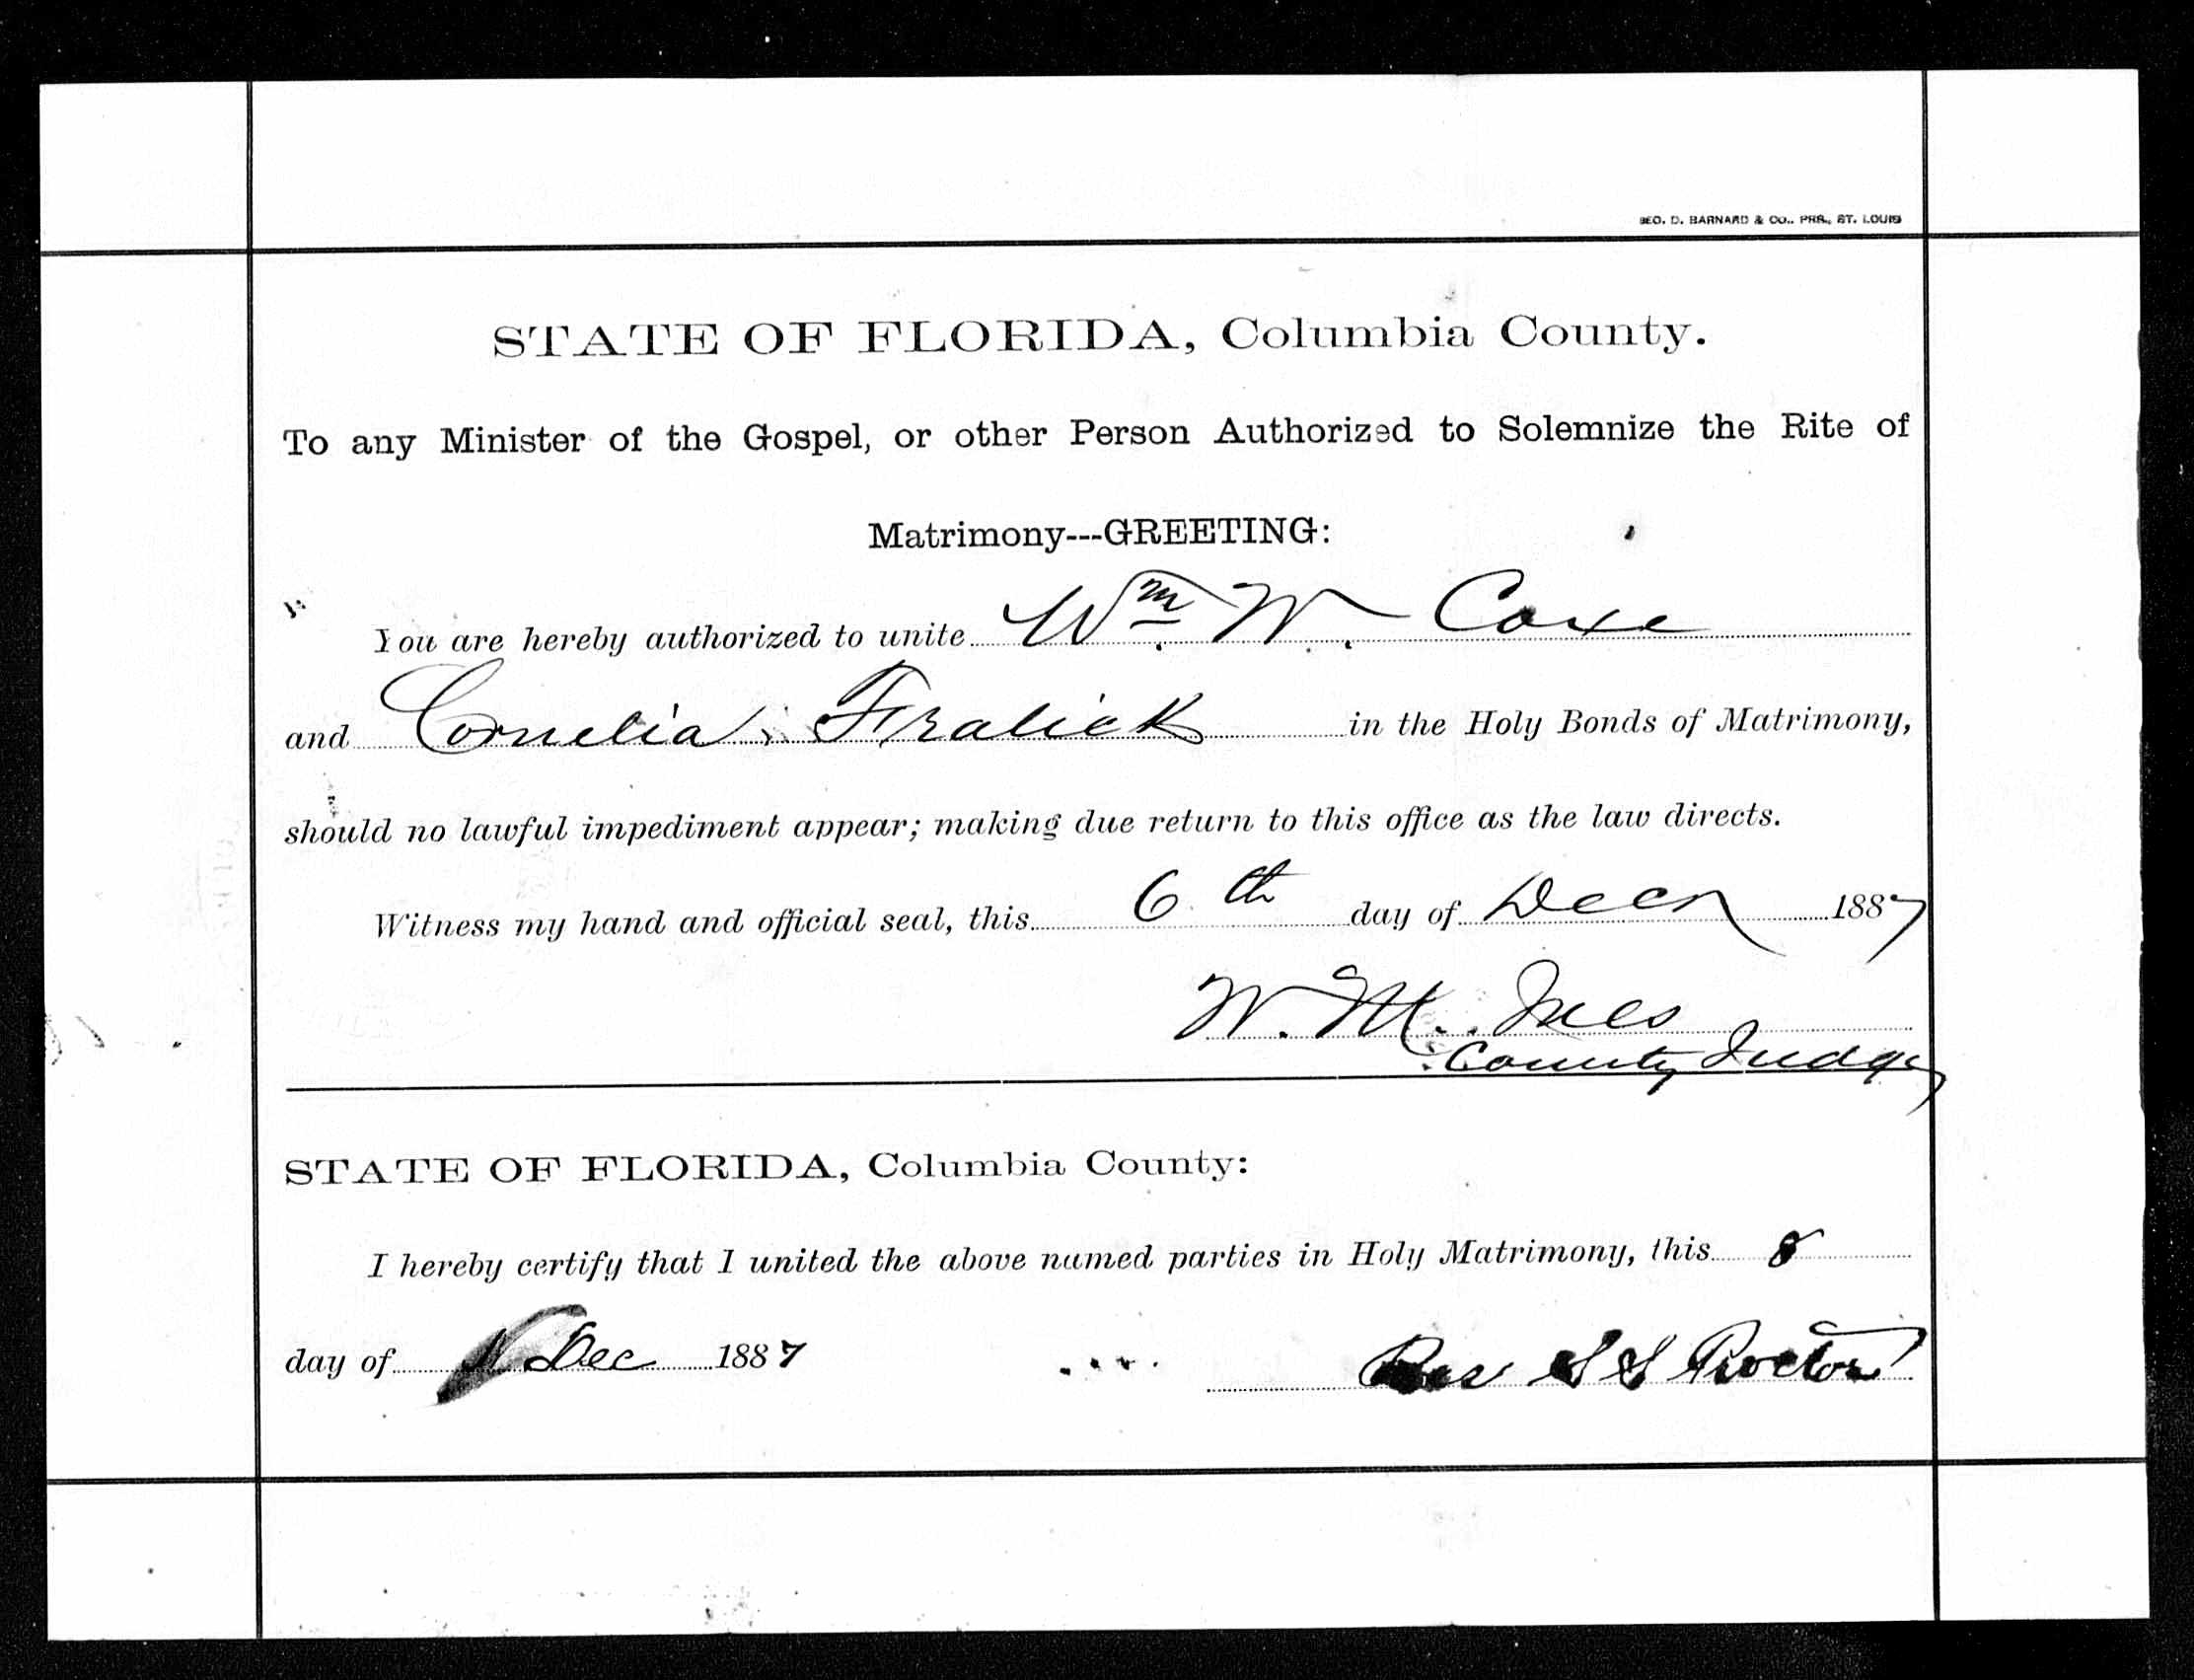 GEO. D. BARNARD & CO., PRS., ST. LOUIS
STATE OF FLORIDA, Columbia County.
To any Minister of the Gospel, or other Person Authorized to Solemnize the Rite of
Matrimony---GREETING:
You are hereby authorized to unite Wm. W. Coxe
and Cornelia Fralick in the Holy Bonds of Matrimony,
should no lawful impediment appear; making due return to this office as the law directs.
Witness my hand and official seal, this 6th day of Decr 1887
W. M. Ives
County Judge
STATE OF FLORIDA, Columbia County:
I hereby certify that I united the above named parties in Holy Matrimony, this 8
day of Dec 1887 Rev S S Proctor